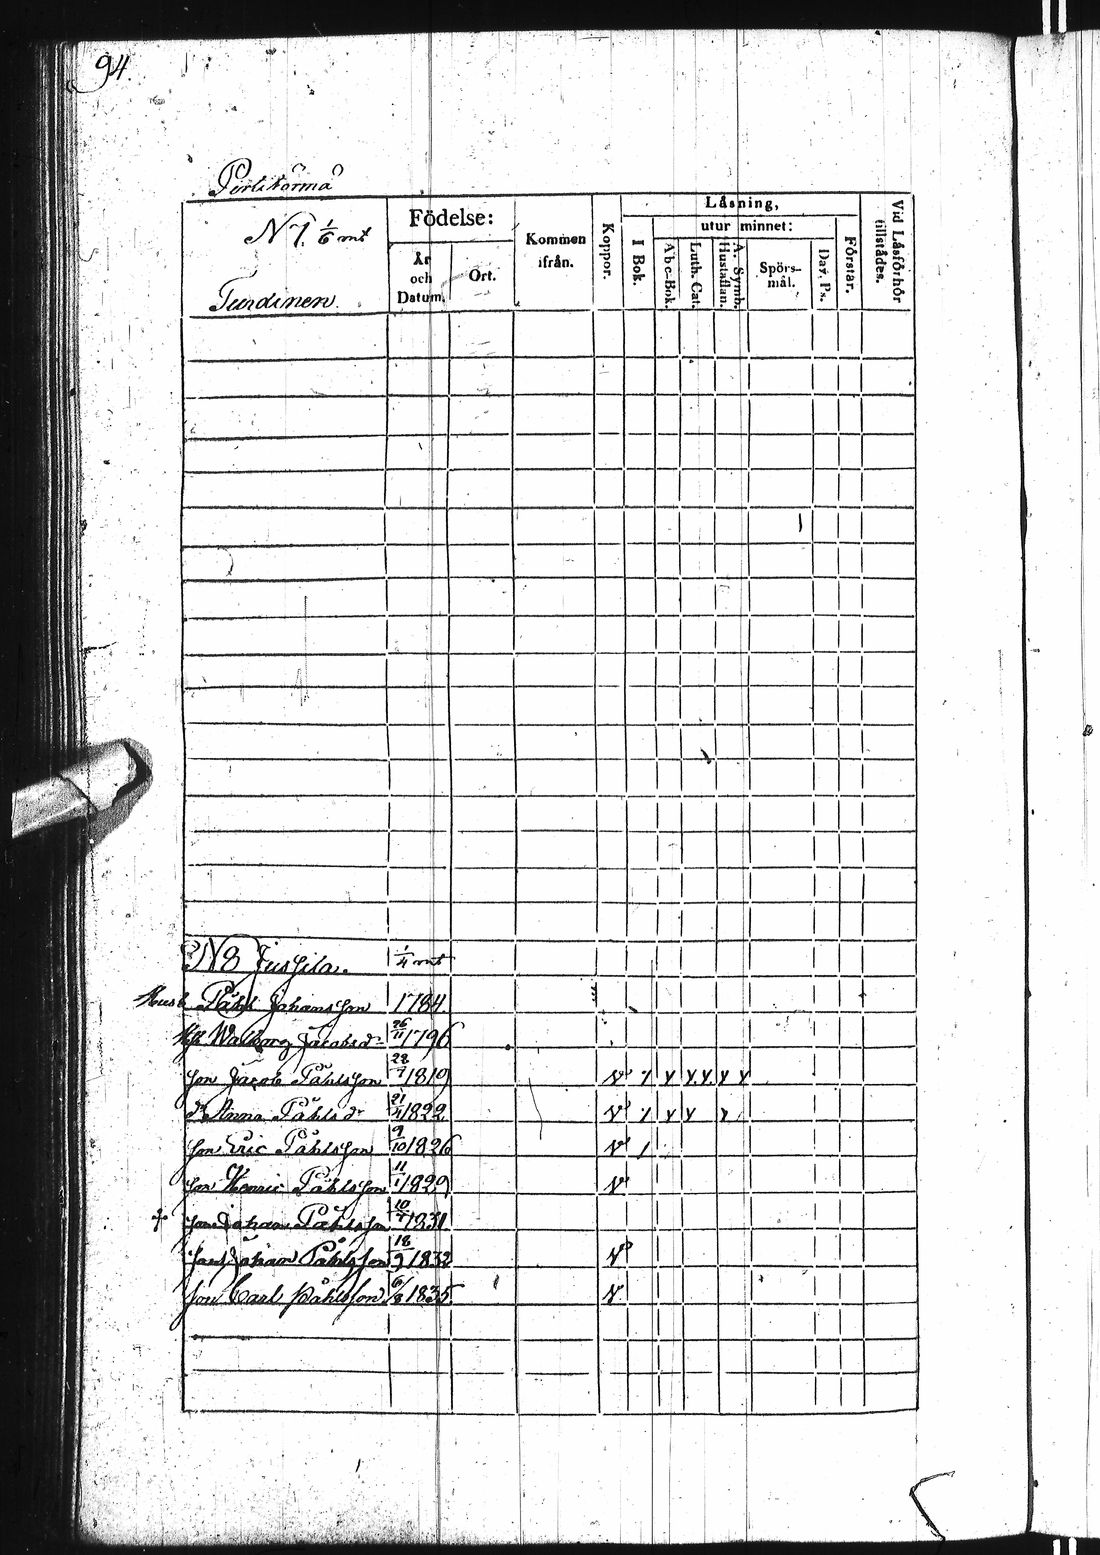 94.
Pertiförmä
N 7. 1/6 mt
Turdinen.
Födelse:
År och Datum.
Ort.
Kommen ifrån.
Koppor.
Låsning,
I Bok.
utur minnet:
Abc-Bok.
Luth. Cat.
Hustaflan.
A. Symb.
Spörs-
mål.
Dav. Ps.
Förstår.
Vid Låsförhör tillstådes.
N 8 Jussila. 1/4 mt
Husb Påhl Johansson 1784
Walborg Jacobsdr 26/11 1796
son Jacob Påhlsson 28/7 1819 V 1 x x x x x
dr Anna Påhlsdr 21/4 1822 V 1 x x x
son Eric Påhlsson 9/10 1826 V 1
son Henric Påhlsson 11/1 1829 V
+ son Johan Påhlsson 10/7 1831
son Johan Påhlsson 18/9 1832 V
son Carl Påhlsson 6/8 1835 V